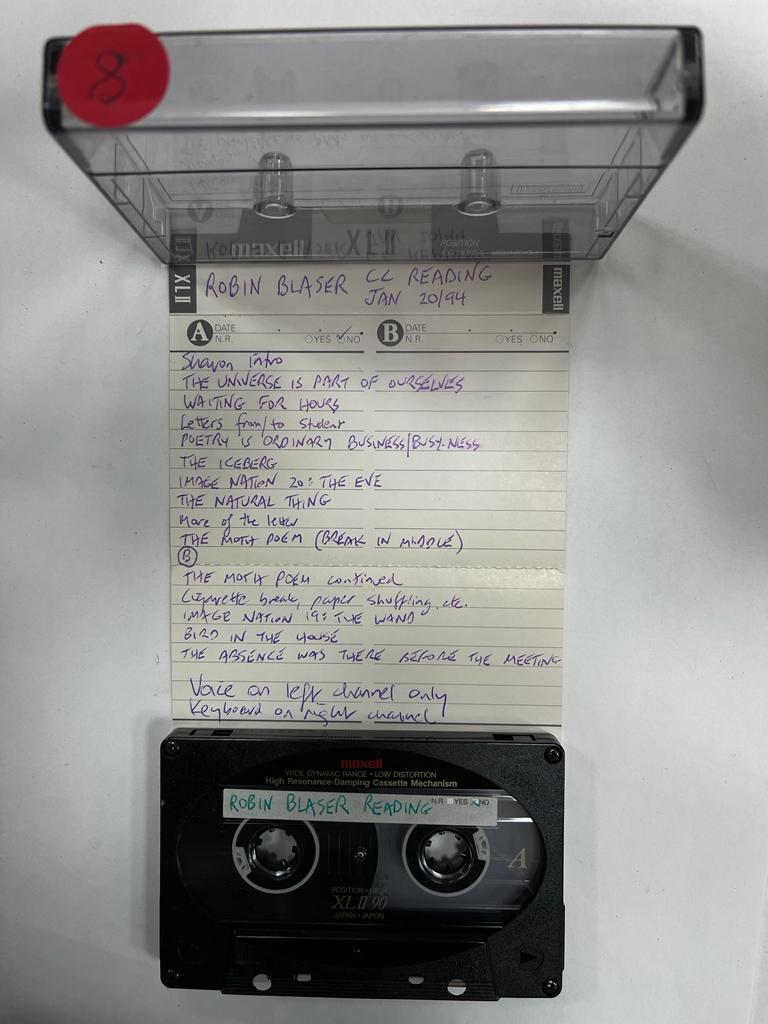 8
maxell XL II POSITION
XL II
ROBIN BLASER CC READING
JAN 20/94
maxell
A DATE
N.R. ○YES ○NO
B DATE
N.R. ○YES ○NO
Sharon Intro
THE UNIVERSE IS PART OF OURSELVES
WAITING FOR HOURS
Letters from/to student
POETRY IS ORDINARY BUSINESS/BUSY-NESS
THE ICEBERG
IMAGE NATION 20: THE EVE
THE NATURAL THING
More of the letter
THE MOTH POEM (BREAK IN MIDDLE)
B
THE MOTH POEM continued
Cigarette break, paper shuffling etc.
IMAGE NATION 19: THE WAND
BIRD IN THE HOUSE
THE ABSENCE WAS THERE BEFORE THE MEETING
Voice on left channel only
Keyboard on right channel
maxell
WIDE DYNAMIC RANGE • LOW DISTORTION
High Resonance-Damping Cassette Mechanism
ROBIN BLASER READING N.R. YES NO
A
POSITION • HIGH
XL II 90
JAPAN • JAPON